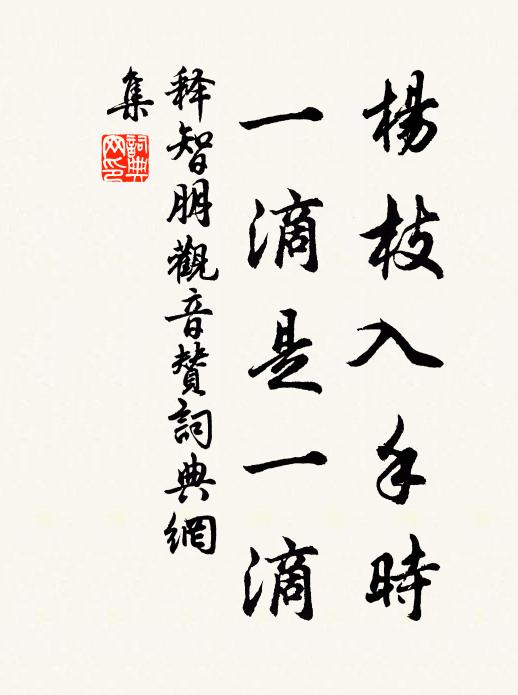 楊枝入手時
一滴是一滴
释智朋觀音贊詞典網
集
詞典網印